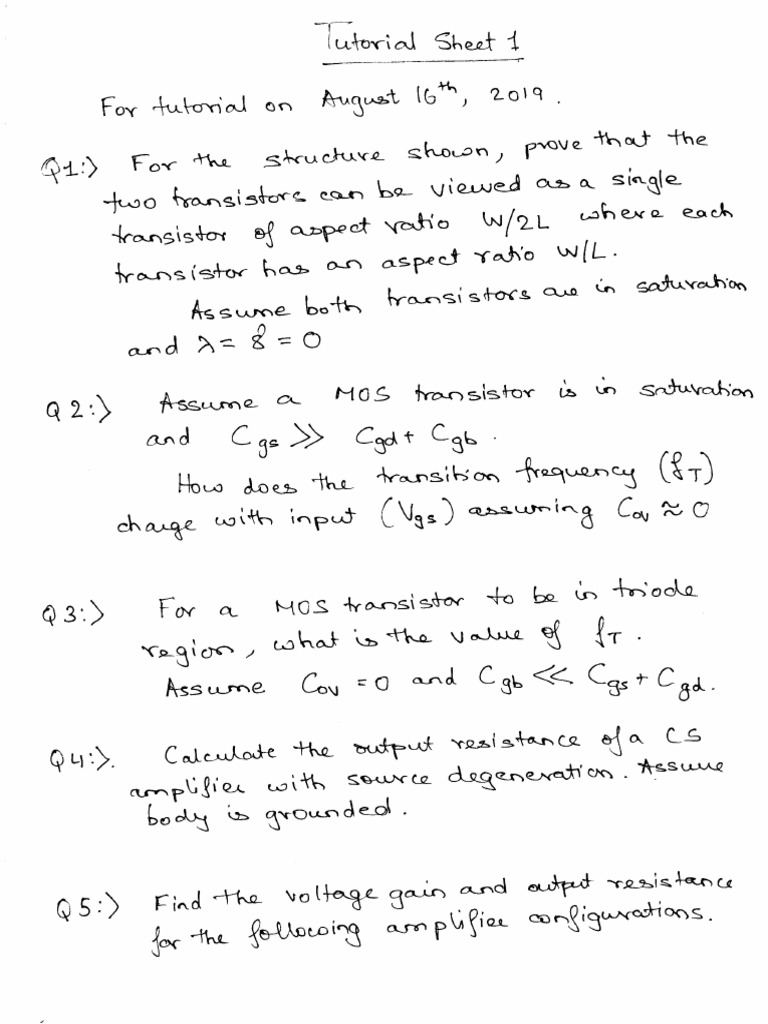 Tutorial Sheet 1
For tutorial on August 16th, 2019.
Q1:) For the structure shown, prove that the
two transistors can be viewed as a single
transistor of aspect ratio W/2L where each
transistor has an aspect ratio W/L.
Assume both transistors are in saturation
and λ = γ = 0
Q2:) Assume a MOS transistor is in saturation
and Cgs >> Cgd + Cgb.
How does the transition frequency (fT)
change with input (Vgs) assuming Cov ≈ 0
Q3:) For a MOS transistor to be in triode
region, what is the value of fT.
Assume Cov = 0 and Cgb << Cgs + Cgd.
Q4:). Calculate the output resistance of a CS
amplifier with source degeneration. Assume
body is grounded.
Q5:) Find the voltage gain and output resistance
for the following amplifier configurations.